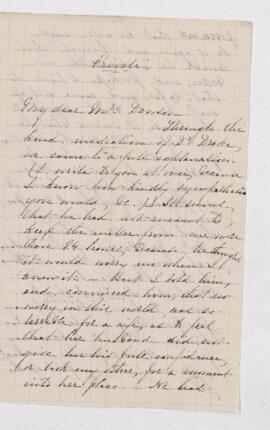 Private
My dear Mrs Dawson
Through the
kind mediation of Dr Duke,
we came to a full explanation.
(I write to you at once, because
I know how kindly sympathetic
you would be.) He
that he had not meant to
keep the matter from me more
than 24 hours, because he thought
it would worry me when I
knew it — But I told him,
and convinced him, that no
worry in the world was so
terrible for a wife, as to feel
that her husband did not
give her his full confidence,
or took any other, for a moment
into her place. — He had